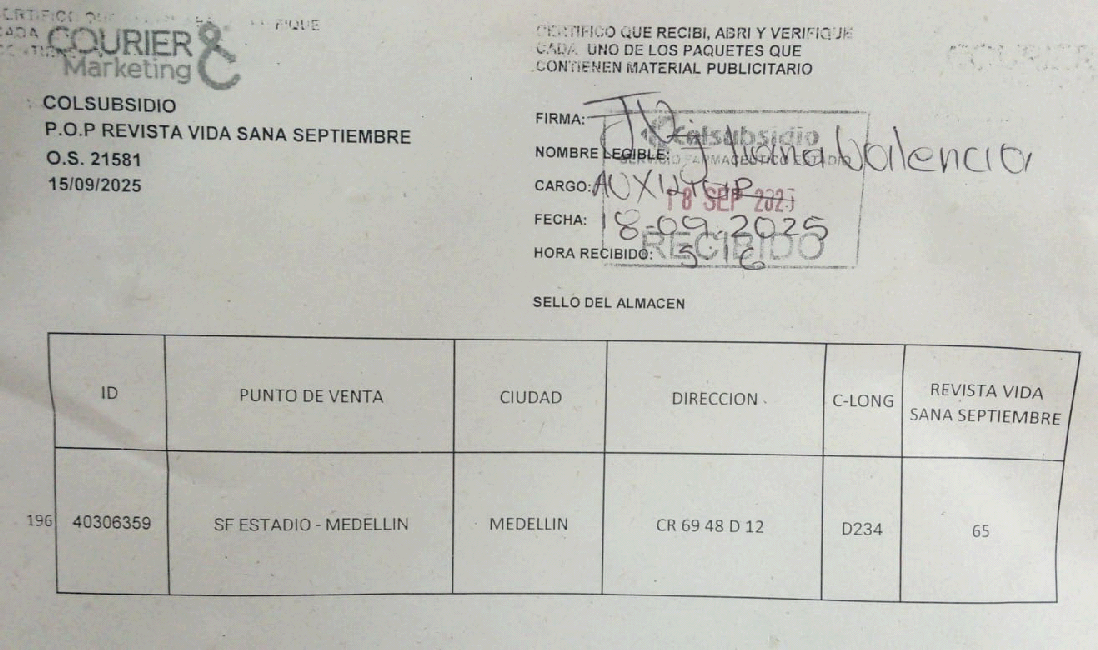 COURIER &
Marketing
COLSUBSIDIO
P.O.P REVISTA VIDA SANA SEPTIEMBRE
O.S. 21581
15/09/2025
CERTIFICO QUE RECIBI, ABRI Y VERIFIQUE
CADA UNO DE LOS PAQUETES QUE
CONTIENEN MATERIAL PUBLICITARIO
FIRMA:
NOMBRE LEGIBLE: Juliana Valencia
CARGO:
FECHA: 18-09-2025
HORA RECIBIDO:
Colsubsidio
SERVICIO FARMACEUTICO ESTADIO
18 SEP 2025
RECIBIDO
SELLO DEL ALMACEN
ID PUNTO DE VENTA CIUDAD DIRECCION C-LONG REVISTA VIDA SANA SEPTIEMBRE
196 40306359 SF ESTADIO - MEDELLIN MEDELLIN CR 69 48 D 12 D234 65